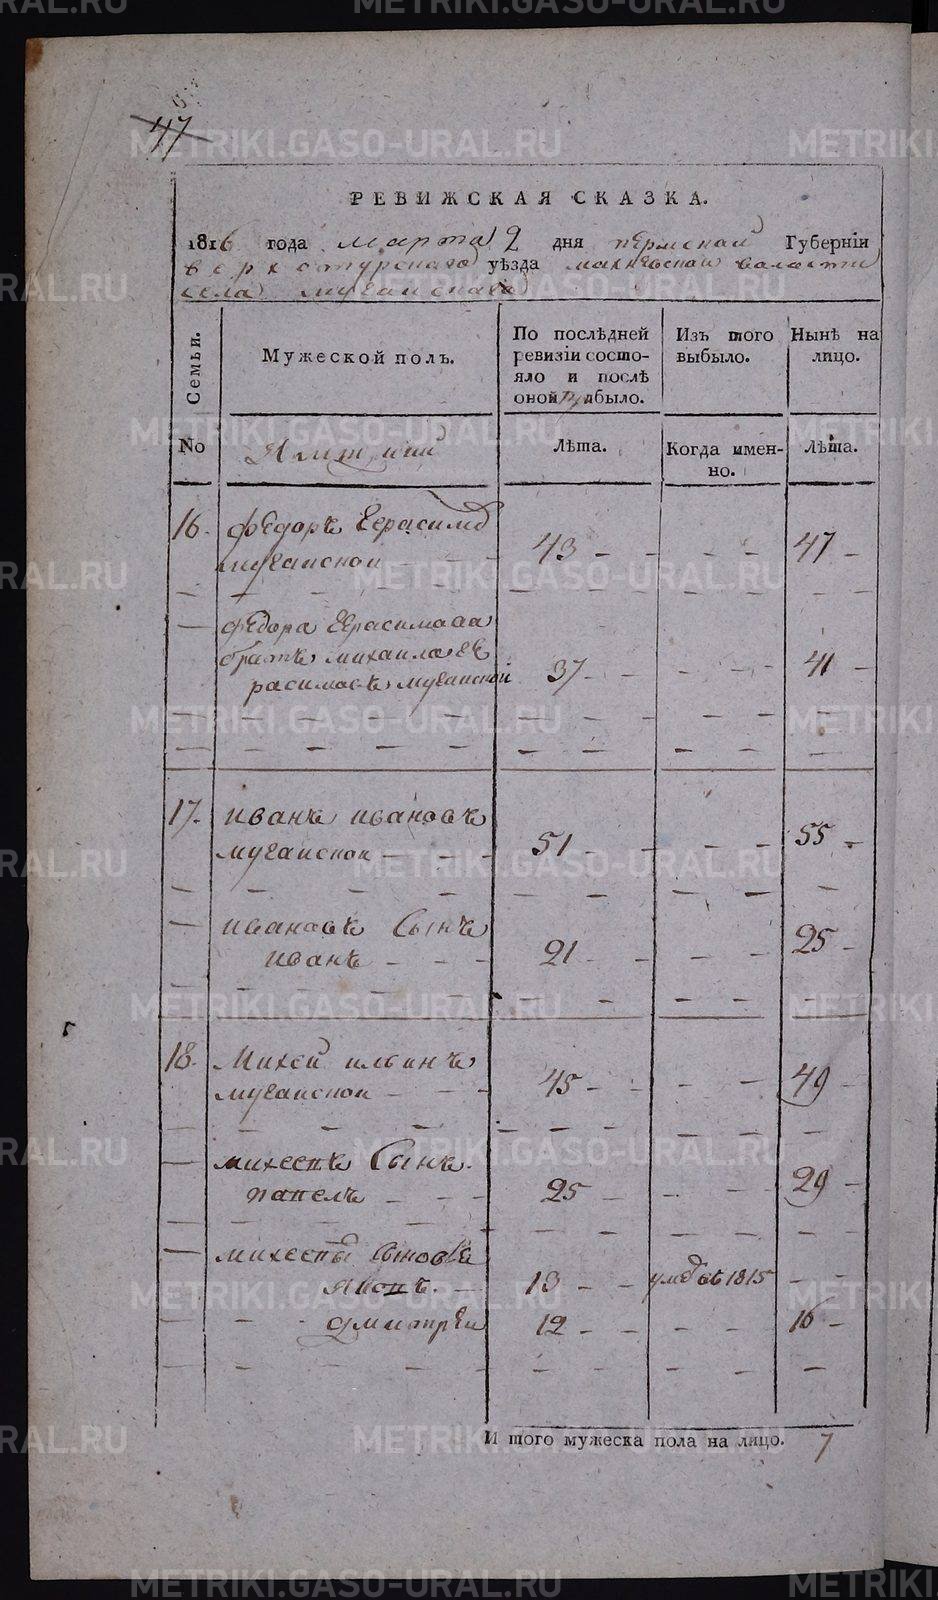 47
РЕВИЖСКАЯ СКАЗКА.
1816 года марта 2 дня пермской Губерніи
верхотурскаго уѣзда махневской валости
села мугайскаго
Семьи.
Мужеской полъ.
По послѣдней ревизіи состояло и послѣ оной прибыло.
Изъ того выбыло.
Нынѣ на лицо.
No
Ямщики
Лѣта.
Когда именно.
Лѣта.
16. Федоръ Герасимов
мугайской 43 47
Федора Герасимава
братъ михаила Ге
расимовъ мугайской 37 41
17. иванъ ивановъ
мугайской 51 55
ивановъ Сынъ
иванъ 21 25
18. Михей ильинъ
мугайской 45 49
михеевъ Сынъ
павелъ 25 29
михеевы Сыновья
Яковъ. 13 умре въ 1815
дмитрей 12 16
И того мужеска пола на лицо. 7
METRIKI.GASO-URAL.RU